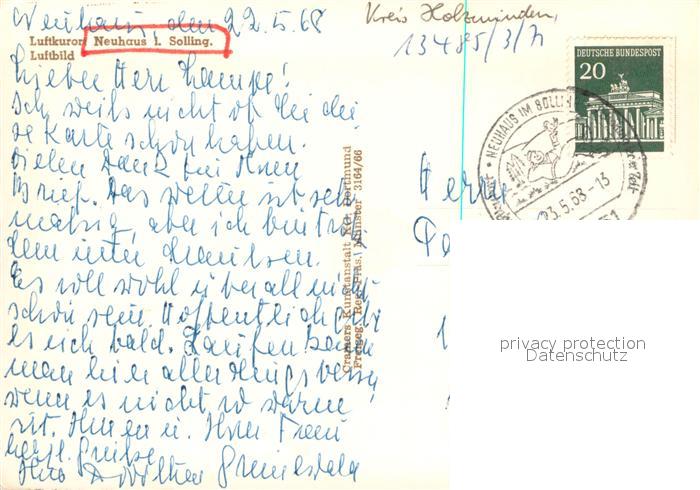 Neuhaus, den 22.5.68
Kreis Holzminden,
13485/3/h
Luftkurort Neuhaus i. Solling.
Luftbild
DEUTSCHE BUNDESPOST
20
NEUHAUS IM SOLLI
23.5.68-13
Lieber Herr Lampe!
Ich weiß nicht ob Sie die
se Karte schon haben.
Vielen Dank für Ihren
Brief. Das Wetter ist sehr
mäßig, aber ich bin trotz
dem immer draußen.
Es soll wohl überall nicht
schön sein. Hoffentlich gibt
es sich bald. Laufen kann
man hier allerdings besser
wenn es nicht so warm
ist. Ihnen u. Ihrer Frau
herzl. Grüße
Ihre Dorothea
Cramers Kunstanstalt KG. Dortmund
Freigeg. Reg. Präs. Münster 3164/66
Herrn
privacy protection
Datenschutz